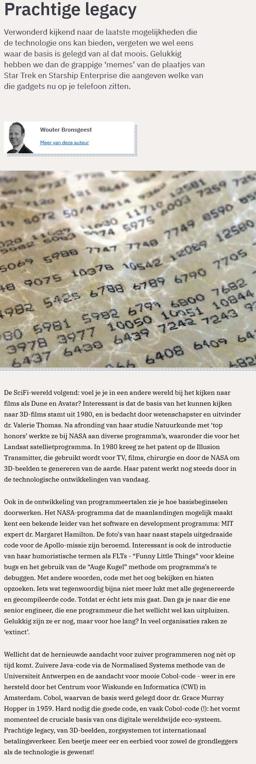 Prachtige legacy
Verwonderd kijkend naar de laatste mogelijkheden die
de technologie ons kan bieden, vergeten we wel eens
waar de basis is gelegd van al dat moois. Gelukkig
hebben we dan de grappige ‘memes’ van de plaatjes van
Star Trek en Starship Enterprise die aangeven welke van
die gadgets nu op je telefoon zitten.
Wouter Bronsgeest
Meer van deze auteur
De SciFi-wereld volgend: voel je je in een andere wereld bij het kijken naar
films als Dune en Avatar? Interessant is dat de basis van het kunnen kijken
naar 3D-films stamt uit 1980, en is bedacht door wetenschapster en uitvinder
dr. Valerie Thomas. Na afronding van haar studie Natuurkunde met ‘top
honors’ werkte ze bij NASA aan diverse programma’s, waaronder die voor het
Landsat satellietprogramma. In 1980 kreeg ze het patent op de Illusion
Transmitter, die gebruikt wordt voor TV, films, chirurgie en door de NASA om
3D-beelden te genereren van de aarde. Haar patent werkt nog steeds door in
de technologische ontwikkelingen van vandaag.
Ook in de ontwikkeling van programmeertalen zie je hoe basisbeginselen
doorwerken. Het NASA-programma dat de maanlandingen mogelijk maakt
kent een bekende leider van het software en development programma: MIT
expert dr. Margaret Hamilton. De foto’s van haar naast stapels uitgedraaide
code voor de Apollo-missie zijn beroemd. Interessant is ook de introductie
van haar humoristische termen als FLTs - “Funny Little Things” voor kleine
bugs en het gebruik van de “Auge Kugel” methode om programma’s te
debuggen. Met andere woorden, code met het oog bekijken en hiaten
opzoeken. Iets wat tegenwoordig bijna niet meer lukt met alle gegenereerde
en gecompileerde code. Totdat er écht iets mis gaat. Dan ga je naar die ene
senior engineer, die ene programmeur die het wellicht wel kan uitpluizen.
Gelukkig zijn ze er nog, maar voor hoe lang? In veel organisaties raken ze
‘extinct’.
Wellicht dat de hernieuwde aandacht voor zuiver programmeren nog nét op
tijd komt. Zuivere Java-code via de Normalised Systems methode van de
Universiteit Antwerpen en de aandacht voor mooie Cobol-code - weer in ere
hersteld door het Centrum voor Wiskunde en Informatica (CWI) in
Amsterdam. Cobol, waarvan de basis werd gelegd door dr. Grace Murray
Hopper in 1959. Hard nodig die goede code, en vaak Cobol-code (!): het vormt
momenteel de cruciale basis van ons digitale wereldwijde eco-systeem.
Prachtige legacy, van 3D-beelden, zorgsystemen tot internationaal
betalingsverkeer. Een beetje meer eer en eerbied voor zowel de grondleggers
als de technologie is gewenst!